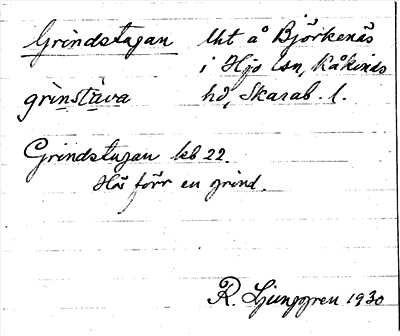 Grindstugan Uht å Björkenäs
i Hyp lsn, Kåkinds
grinstäva hd, Skarab. l.
Grindstugan kb 22.
Här förr en grind.
R. Ljunggren 1930